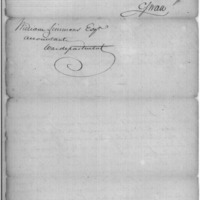 William Simmons Esqr
Accountant
War department